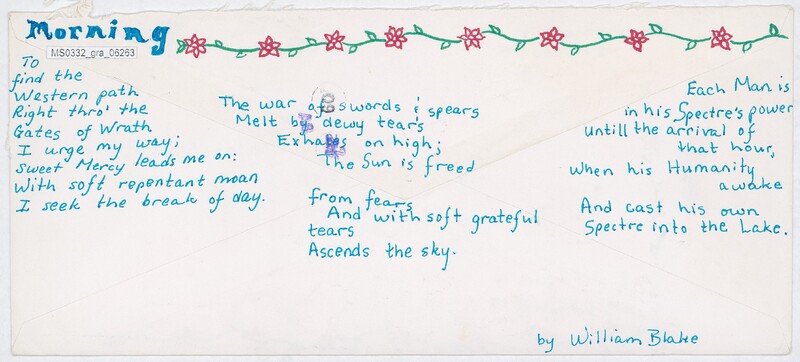 Morning
MS0332_gra_06263
To
find the
Western path
Right thro' the
Gates of Wrath
I urge my way;
Sweet Mercy leads me on:
With soft repentant moan
I seek the break of day.
The war of swords & spears
Melt by dewy tears
Exhales on high;
The Sun is freed
from fears
And with soft grateful
tears
Ascends the sky.
Each Man is
in his Spectre's power
untill the arrival of
that hour,
when his Humanity
awake
And cast his own
Spectre into the Lake.
by William Blake